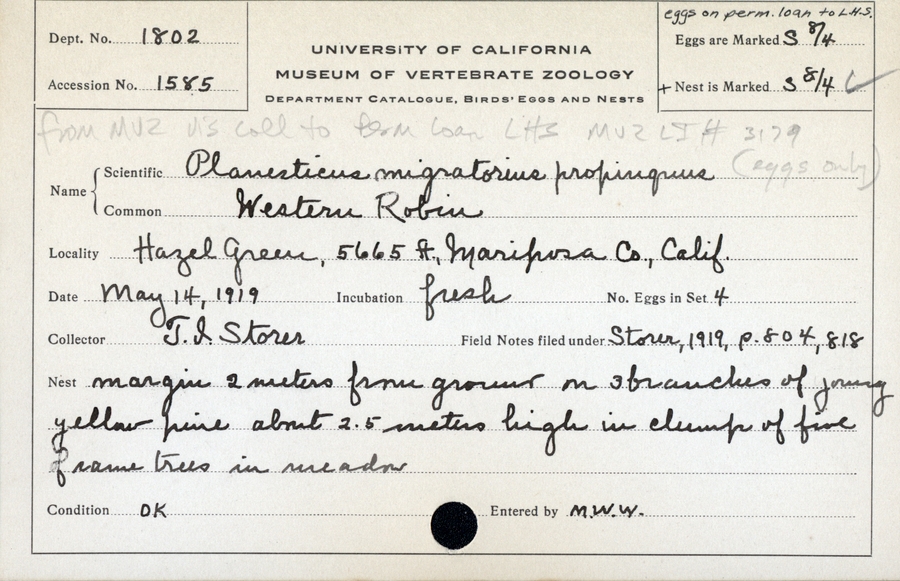 eggs on perm. loan to L.H.S.
Dept. No. 1802
UNIVERSITY OF CALIFORNIA
Eggs are Marked S 8/4
Accession No. 1585
MUSEUM OF VERTEBRATE ZOOLOGY
+ Nest is Marked S 8/4 ✓
DEPARTMENT CATALOGUE, BIRDS' EGGS AND NESTS
from MVZ vis coll to perm loan LHS MVZ LI # 3179
(eggs only)
Name { Scientific Planesticus migratorius propinquus
Common Western Robin
Locality Hazel Green, 5665 ft., Mariposa Co., Calif.
Date May 14, 1919 Incubation fresh No. Eggs in Set 4
Collector T. I. Storer Field Notes filed under Storer, 1919, p. 804, 818
Nest margin 2 meters from ground on 3 branches of young
yellow pine about 2.5 meters high in clump of five
of same trees in meadow
Condition OK Entered by M.W.W.